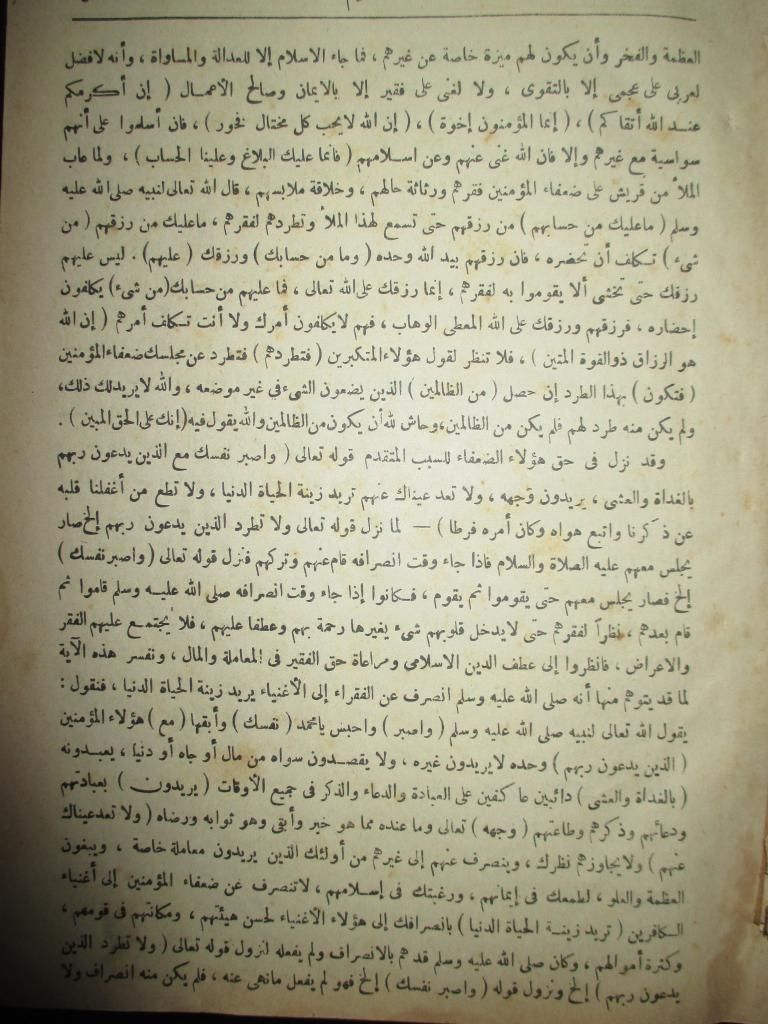 العظمة والفخر وأن يكون لهم ميزة خاصة عن غيرهم ، فما جاء الاسلام إلا للعدالة والمساواة ، وأنه لافضل
لعربى على عجمى إلا بالتقوى ، ولا لغنى على فقير إلا بالايمان وصالح الأعمال ( إن أكرمكم
عند الله أتقاكم ) ، ( إنما المؤمنون إخوة ) ، ( إن الله لايحب كل مختال فخور ) ، فان أسلموا على أنهم
سواسية مع غيرهم وإلا فان الله غنى عنهم وعن اسلامهم ( فانما عليك البلاغ وعلينا الحساب ) ، ولما عاب
الملأ من قريش على ضعفاء المؤمنين فقرهم ورثاثة حالهم ، وخلاقة ملابسهم ، قال الله تعالى لنبيه صلى الله عليه
وسلم ( ماعليك من حسابهم ) من رزقهم حتى تسمع لهذا الملأ وتطردهم لفقرهم ، ماعليك من رزقهم ( من
شىء ) تكلف أن تحضره ، فان رزقهم بيد الله وحده ( وما من حسابك ) ورزقك ( عليهم ) . ليس عليهم
رزقك حتى تخشى ألا يقوموا به لفقرهم ، إنما رزقك على الله تعالى ، فما عليهم من حسابك (من شىء) يكلفون
إحضاره ، فرزقهم ورزقك على الله المعطى الوهاب ، فهم لايكلفون أمرك ولا أنت تكلف أمرهم ( إن الله
هو الرزاق ذوالقوة المتين ) ، فلا تنظر لقول هؤلاء المتكبرين ( فتطردهم ) فتطرد عن مجلسك ضعفاء المؤمنين
( فتكون ) بهذا الطرد إن حصل ( من الظالمين ) الذين يضعون الشىء فى غير موضعه ، والله لا يريد لك ذلك،
ولم يكن منه طرد لهم فلم يكن من الظالمين، وحاش لله أن يكون من الظالمين والله يقول فيه (إنك على الحق المبين ) .
وقد نزل فى حق هؤلاء الضعفاء للسبب المتقدم قوله تعالى ( واصبر نفسك مع الذين يدعون ربهم
بالغداة والعشى ، يريدون وجهه ، ولا تعد عيناك عنهم تريد زينة الحياة الدنيا ، ولا تطع من أغفلنا قلبه
عن ذكرنا واتبع هواه وكان أمره فرطا ) — لما نزل قوله تعالى ولا تطرد الذين يدعون ربهم إلخ صار
يجلس معهم عليه الصلاة والسلام فاذا جاء وقت انصرافه قام عنهم وتركهم فنزل قوله تعالى ( واصبر نفسك )
إلخ فصار يجلس معهم حتى يقوموا ثم يقوم ، فكانوا إذا جاء وقت انصرافه صلى الله عليه وسلم قاموا ثم
قام بعدهم ، نظراً لفقرهم حتى لايدخل قلوبهم شىء يغيرها رحمة بهم وعطفا عليهم ، فلا يجتمع عليهم الفقر
والاعراض ، فانظروا إلى عطف الدين الاسلامى ومراعاة حق الفقير فى المعاملة والمال ، ونفسر هذه الآية
لما قد يتوهم منها أنه صلى الله عليه وسلم انصرف عن الفقراء إلى الأغنياء يريد زينة الحياة الدنيا ، فنقول :
يقول الله تعالى لنبيه صلى الله عليه وسلم ( واصبر ) واحبس يامحمد ( نفسك ) وأبقها ( مع ) هؤلاء المؤمنين
( الذين يدعون ربهم ) وحده لايريدون غيره ، ولا يقصدون سواه من مال أو جاه أو دنيا ، يعبدونه
( بالغداة والعشى ) دائبين عاكفين على العبادة والدعاء والذكر فى جميع الأوقات ( يريدون ) بعبادتهم
ودعائهم وذكرهم وطاعتهم ( وجهه ) تعالى وما عنده مما هو خير وأبقى وهو ثوابه ورضاه ( ولا تعد عيناك
عنهم ) ولايجاوزهم نظرك ، وينصرف عنهم إلى غيرهم من أولئك الذين يريدون معاملة خاصة ، ويبغون
العظمة والعلو ، لطمعك فى إيمانهم ، ورغبتك فى إسلامهم ، لاتنصرف عن ضعفاء المؤمنين إلى أغنياء
الكافرين ( تريد زينة الحياة الدنيا ) بانصرافك إلى هؤلاء الأغنياء لحسن هيئتهم ، ومكانتهم فى قومهم ،
وكثرة أموالهم ، وكان صلى الله عليه وسلم قد هم بالانصراف ولم يفعله لنزول قوله تعالى ( ولا تطرد الذين
يدعون ربهم ) إلخ ونزول قوله ( واصبر نفسك ) إلخ فهو لم يفعل مانهى عنه ، فلم يكن منه انصراف ولا